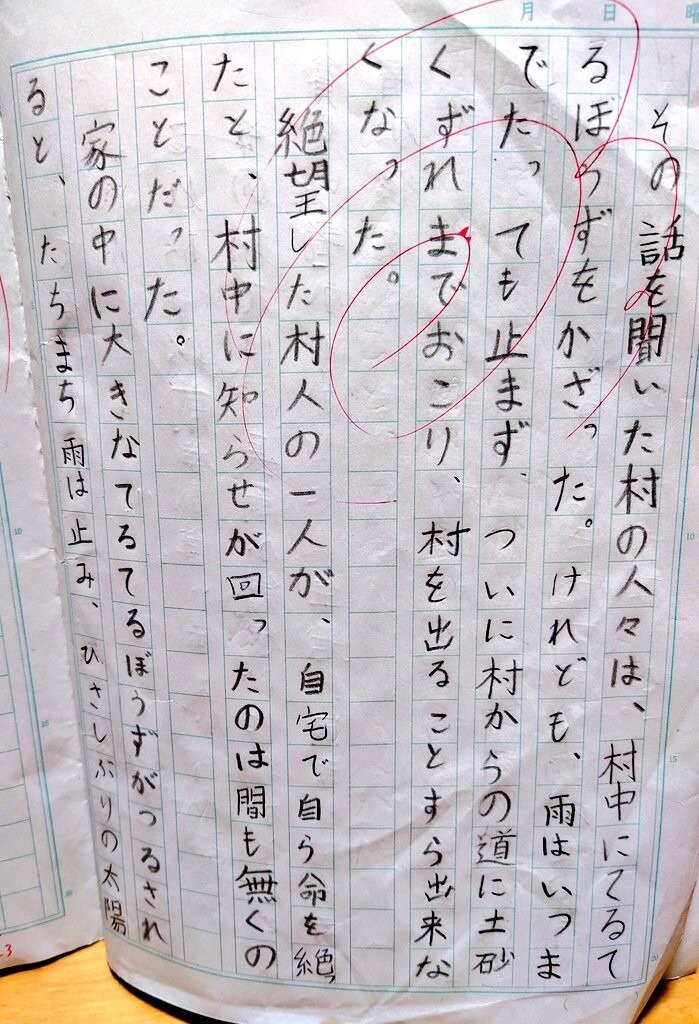 月 日 曜
その話を聞いた村の人々は、村中にてるて
るぼうずをかざった。けれども、雨はいつま
でたっても止まず、ついに村からの道に土砂
くずれまでおこり、村を出ることすら出来な
くなった。
絶望した村人の一人が、自宅で自ら命を絶っ
たと、村中に知らせが回ったのは間も無くの
ことだった。
家の中に大きなてるてるぼうずがつるされ
ると、たちまち雨は止み、ひさしぶりの太陽
10
15
20
10
15
20